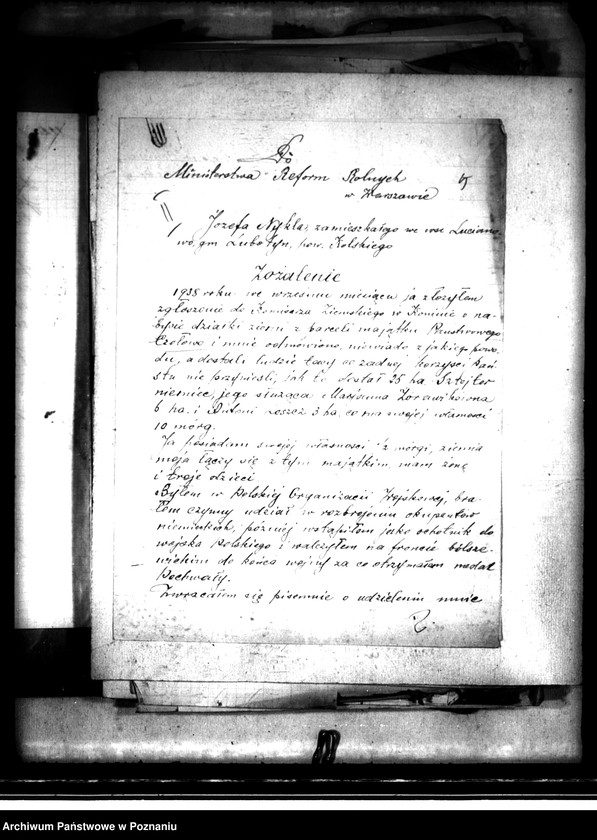 Do
Ministerstwa Reform Rolnych
w Warszawie
Józefa Nykla, zamieszkałego we wsi Luciano-
wo, gm Lubotyn, pow. Kolskiego
Zożalenie
1935 roku we wrześniu miesiącu ja złożyłem
zgłoszenie do Komisarza Ziemskiego w Koninie o na-
bycie działki ziemi z parceli majątku Państwowego
i mnie odmówiono, niewiado z jakiego powo-
du, a dostali ludzie tacy co żadnej korzyści Pań-
stu nie przynieśli, jak to dostał 25 ha.
niemiec, jego służąca Marjanna Zorawikowna
6 ha. i Antoni 3 ha. co ma swojej własności
10 morg.
Ja posiadam swojej własności 2 morgi, ziemia
moja łączy się z tym majątkim, mam żonę
i troje dzieci
Byłem w Polskiej Organizacii Wojskowej, bra-
łem czynny udział w rozbrojeniu okupantów
niemieckich, później wstąpiłem jako ochotnik do
wojska Polskiego i walczyłem na froncie bolsze-
wickim do końca wojny za co otrzymałem medal
Pochwały.
Zwracałem się pisemnie o udzieleniu mnie
Archiwum Państwowe w Poznaniu